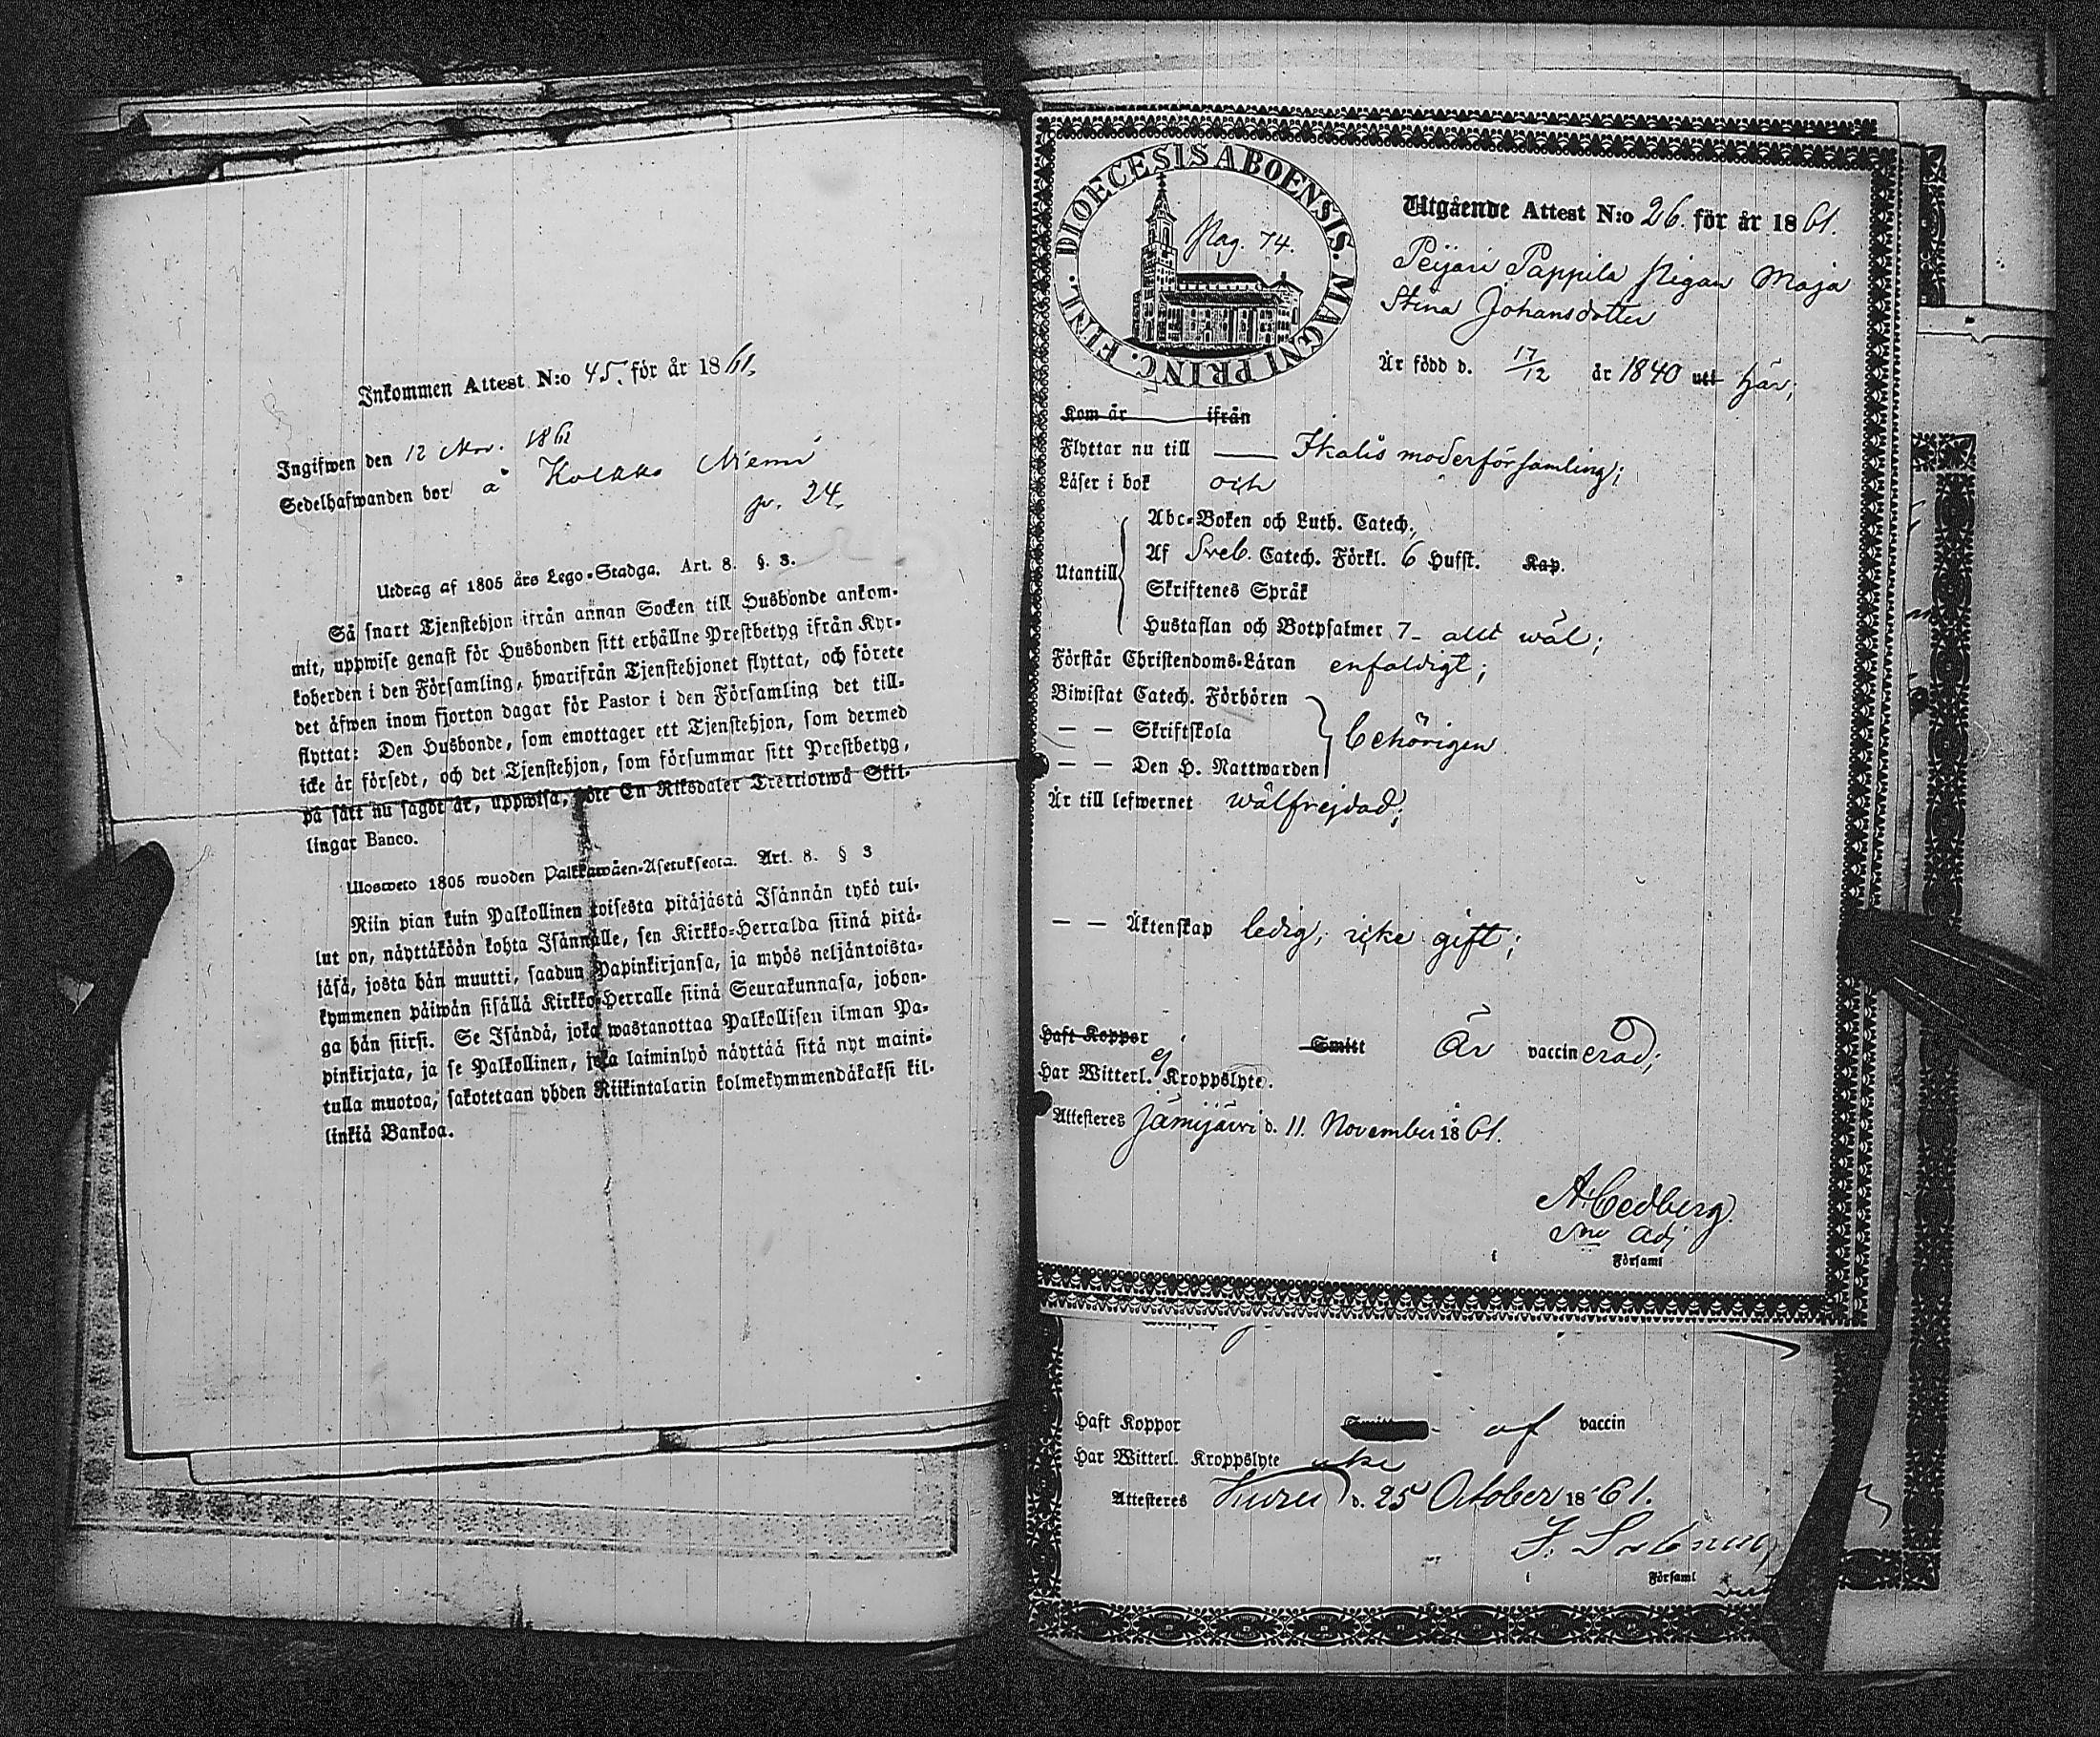 Inkommen Attest N:o 45. för år 1861.
Ingifwen den 12 Nov. 1861
Sedelhafwanden bor å Kolkko Niemi
p. 24.
Utdrag af 1805 års Lego-Stadga. Art. 8. §. 3.
Så snart Tjenstehjon ifrån annan Socken till Husbonde ankom-
mit, uppwise genast för Husbonden sitt erhållne Prestbetyg ifrån Kyr-
koherden i den Församling, hwarifrån Tjenstehjonet flyttat, och förete
det äfwen inom fjorton dagar för Pastor i den Församling det till-
flyttat: Den Husbonde, som emottager ett Tjenstehjon, som dermed
icke är försedt, och det Tjenstehjon, som försummar sitt Prestbetyg,
på sätt nu sagdt är, uppwisa, böte En Riksdaler Trettiotwå Skil-
lingar Banco.
Ulosweto 1805 wuoden Palkkawäen-Asetuksesta. Art. 8. § 3
Niin pian kuin Palkollinen toisesta pitäjästä Isännän tykö tul-
lut on, näyttäköön kohta Isännälle, sen Kirkko-Herralda siinä pitä-
jäsä, josta hän muutti, saadun Papinkirjansa, ja myös neljäntoista-
kymmenen päiwän sisällä Kirkko-Herralle siinä Seurakunnasa, johon-
ga hän siirsi. Se Isändä, joka wastanottaa Palkollisen ilman Pa-
pinkirjata, ja se Palkollinen, joka laiminlyö näyttää sitä nyt maini-
tulla muotoa, sakotetaan yhden Riikintalarin kolmekymmendäkaksi kil-
linkiä Bankoa.
DIOECESIS ABOENSIS. MAGNI PRINC. FINL.
Pag. 74.
Utgående Attest N:o 26. för år 1861.
Peijari Pappila Pigan Maja
Stina Johansdotter
Är född d. 17/12 år 1840 uti här;
Kom år ifrån
Flyttar nu till Ikalis moderförsamling;
Läser i bok och
Utantill
Abc-Boken och Luth. Catech.,
Af Sveb. Catech. Förkl. 6 Hufst. Kap.
Skriftenes Språk
Hustaflan och Botpsalmer 7 – allt wäl;
Förstår Christendoms-Läran enfaldigt;
Biwistat Catech. Förhören
— — Skriftskola behörigen
— — Den H. Nattwarden
Är till lefwernet wälfrejdad;
— — Äktenskap ledig, icke gift;
Haft Koppor Smitt Är vaccinerad;
Har Witterl. ej Kroppslyte.
Attesteres Jämijärvi d. 11. November 1861.
A. Cedberg
Adj
i Församl
Haft Koppor af vaccin
Har Witterl. Kroppslyte icke
Attesteres Kuru d. 25 October 1861.
i Församl